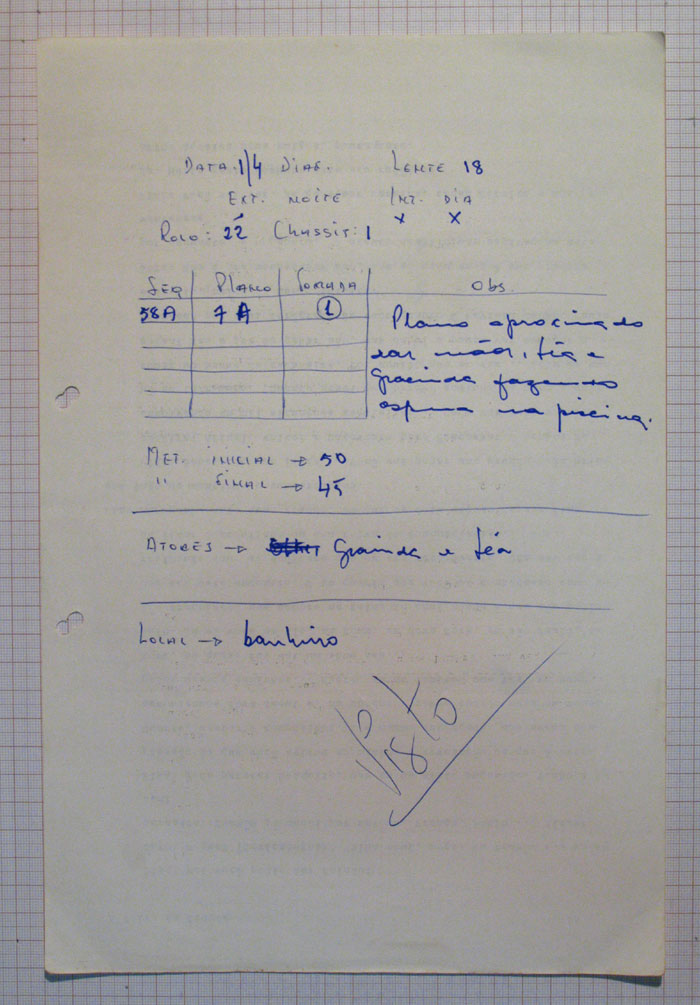 DATA: 1/4 DIAF. LENTE 18
EXT. NOITE INT. DIA
x x
ROLO: 22 CHASSIT: 1
SEQ PLANO TOMADA Obs.
58A 7A 1 Plano aproximado
das mãos, téa e
Gracinda fazendo
espuma na piscina.
MET. INICIAL → 50
" FINAL → 45
ATORES → Gracinda e téa
LOCAL → banheiro
Visto